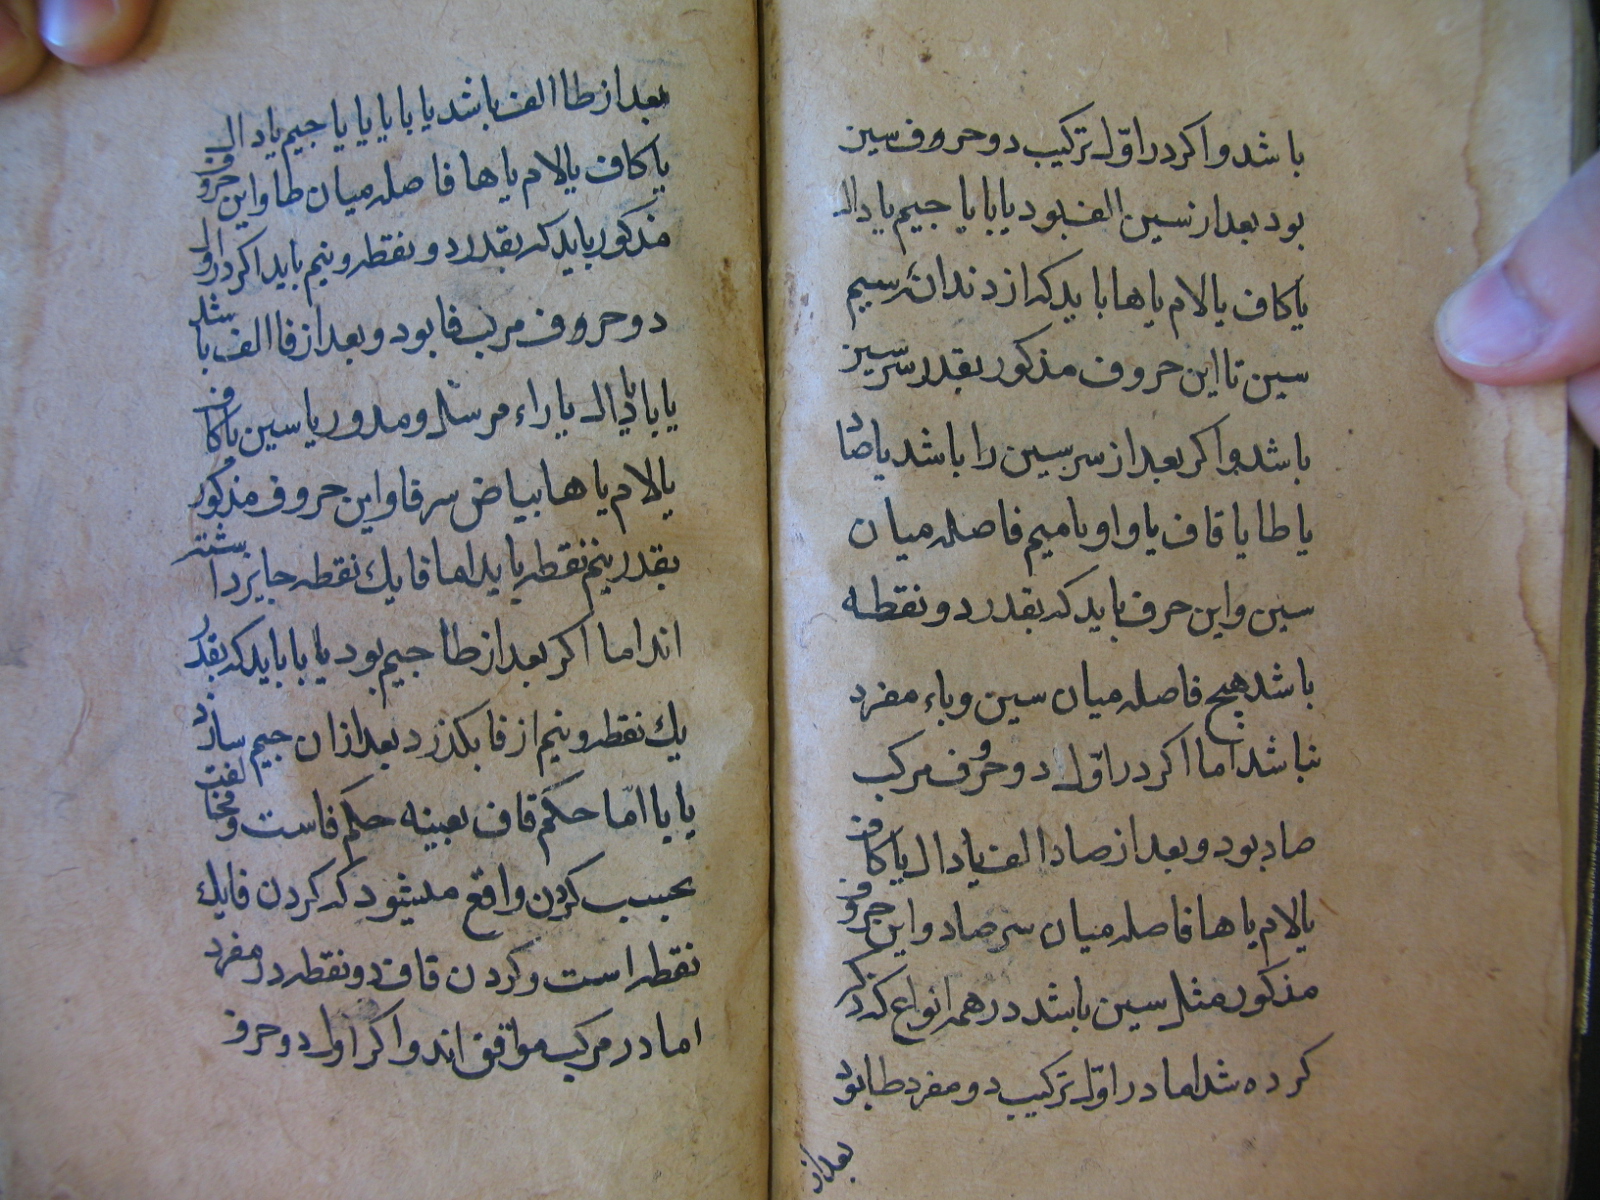 باشد واکر در اوّل ترکیب دو حروف سین
بود بعد از سین الف بود یا با یا جیم یا دال
یا کاف یا لام یا ها باید که از دندانهٔ سیم
سین تا این حروف مذکور بقدر سر سین
باشد واکر بعد از سر سین را باشد یا صاد
یا طا یا قاف یا واو یا میم فاصله میان
سین و این حرف باید که بقدر دو نقطه
باشد هیچ فاصله میان سین و باء مفرد
نباشد اما اکر در اوّل دو حروف مرکب
صاد بود و بعد از صاد الف یا دال یا کاف
یا لام یا ها فاصله میان سر صاد و این حروف
مذکور مثل سین باشد در همه انواع که ذکر
کرده شد اما در اوّل ترکیب دو مفرد طا بود
بعد از
بعد از طا الف باشد یا با یا یا یا جیم یا دال
یا کاف یا لام یا ها فاصله میان طا و این حروف
مذکور باید که بقدر دو نقطه و نیم باید اکر در اول
دو حروف مرکب فا بود و بعد از فا الف باشد
یا با یا دال یا راء مرسل و مدور یا سین یا کاف
یا لام یا ها بیاض سر فا و این حروف مذکور
بقدر نیم نقطه باید اما فا یک نقطه جایز داشته
اند اما اکر بعد از طا جیم بود یا با باید که بقدر
یک نقطه و نیم از فا بکذرد بعد از ان جیم سازد
یا یا امّا حکم قاف بعینه حکم فاست و مخالفت
بحسب کردن واقع میشود که کردن فا یک
نقطه است و کردن قاف دو نقطه در مفرد
اما در مرکب موافق اند واکر اول دو حرف